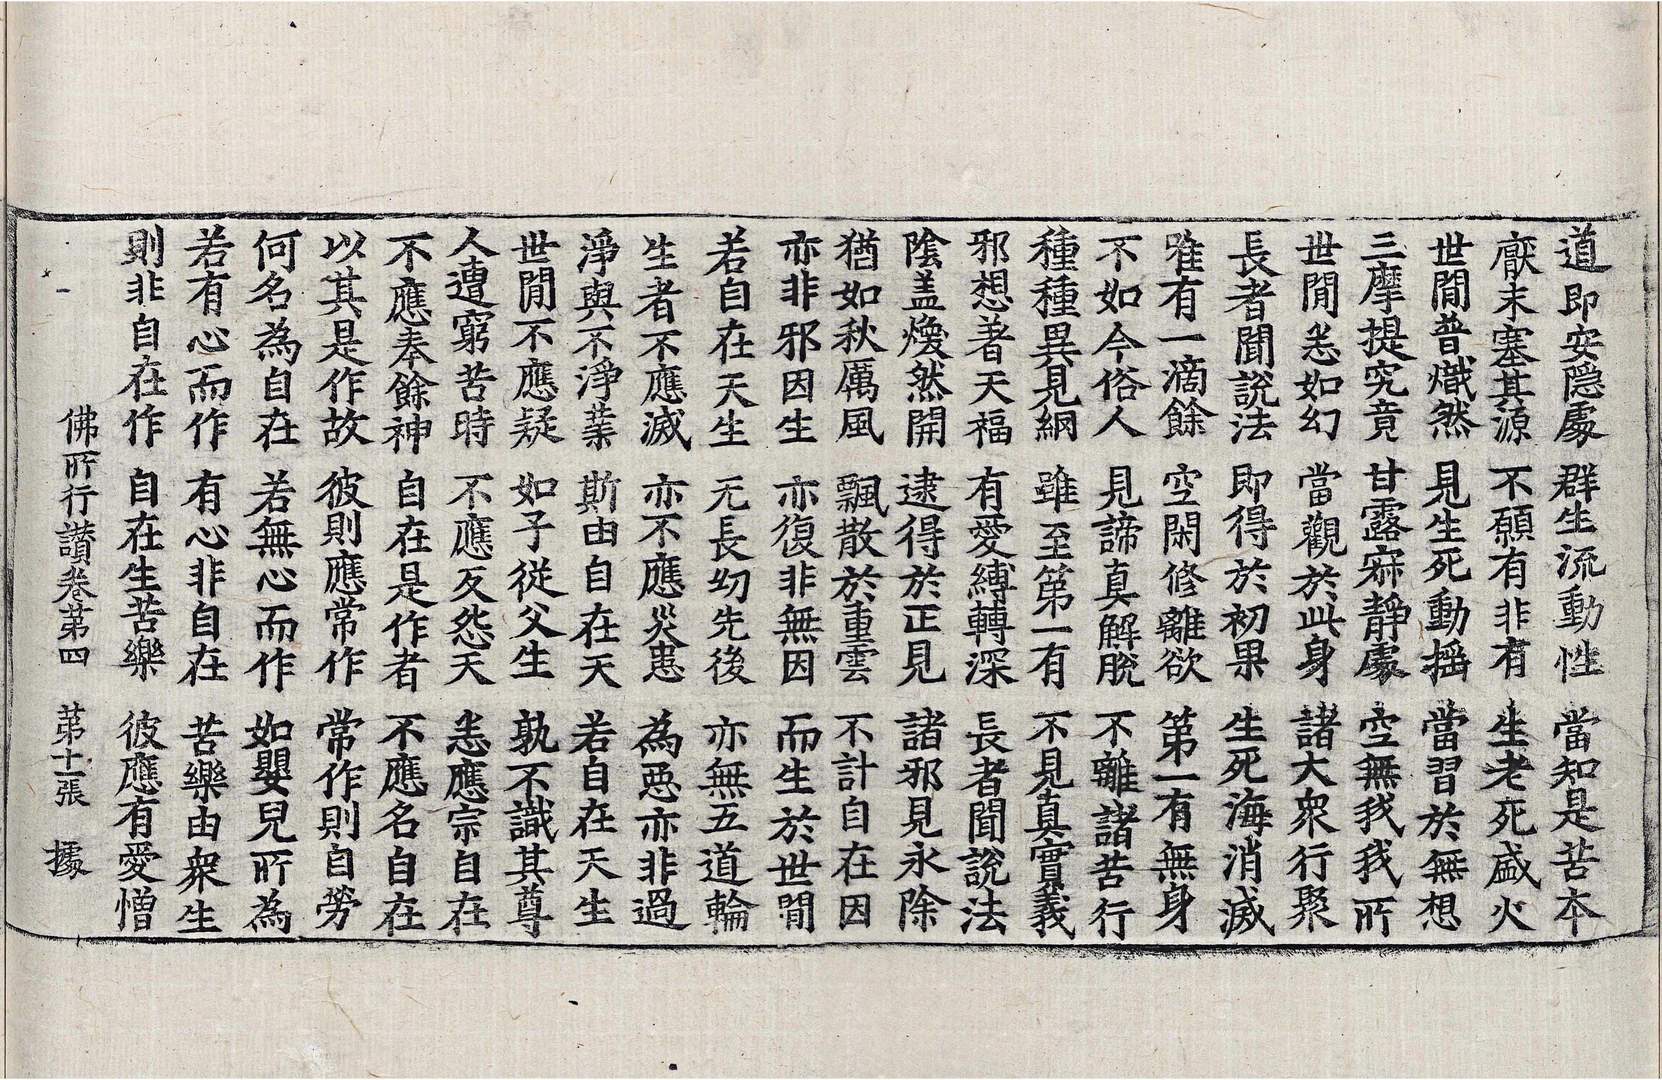 道即安隱處　群生流動性　當知是苦本
厭末塞其源　不願有非有　生老死盛火
世閒普熾然　見生死動摇　當習於無想
三摩提究竟　甘露寂靜處　空無我我所
世閒悉如幻　當觀於此身　諸大衆行聚
長者聞說法　即得於初果　生死海消滅
唯有一滴餘　空閑修離欲　第一有無身
不如今俗人　見諦真解脫　不離諸苦行
種種異見網　雖至第一有　不見真實義
邪想著天福　有愛縛轉深　長者聞說法
陰盖煥然開　逮得於正見　諸邪見永除
猶如秋厲風　飄散於重雲　不計自在因
亦非邪因生　亦復非無因　而生於世閒
若自在天生　无長幼先後　亦無五道輪
生者不應滅　亦不應災患　為惡亦非過
淨與不淨業　斯由自在天　若自在天生
世閒不應疑　如子從父生　孰不識其尊
人遭窮苦時　不應反怨天　悉應宗自在
不應奉餘神　自在是作者　不應名自在
以其是作故　彼則應常作　常作則自勞
何名為自在　若無心而作　如嬰兒所為
若有心而作　有心非自在　苦樂由衆生
則非自在作　自在生苦樂　彼應有愛憎
佛所行讚卷第四　第十一張　據